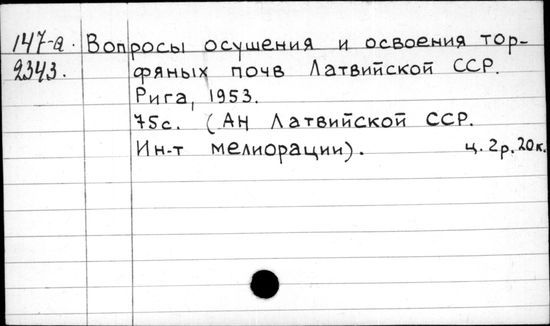 147-а. Вопросы осушения и освоения тор-
2343. фяных почв Латвийской ССР.
Рига, 1953.
75с. (АН Латвийской ССР.
Ин-т мелиорации). ц. 2р. 20к.